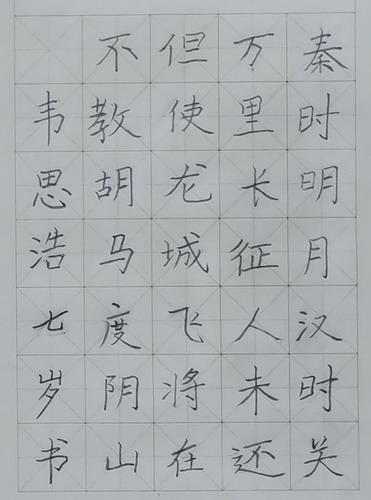 秦时明月汉时关
万里长征人未还
但使龙城飞将在
不教胡马度阴山
韦思浩七岁书